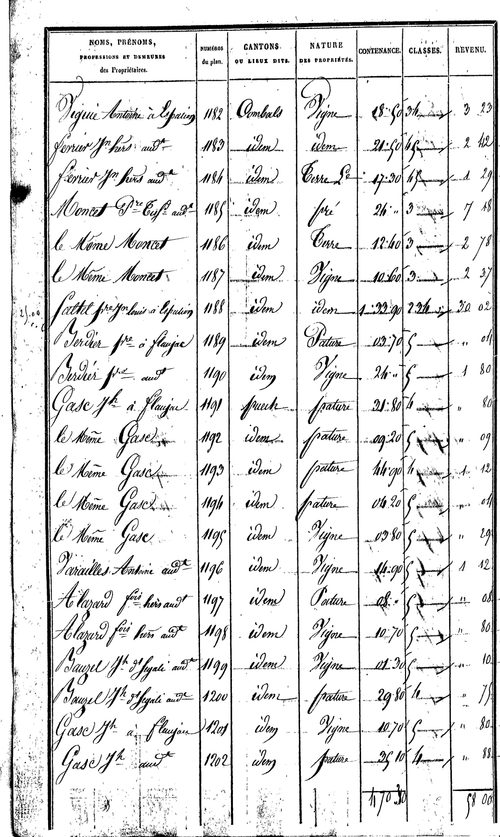 NOMS, PRÉNOMS, PROFESSIONS ET DEMEURES des Propriétaires. NUMÉROS du plan. CANTONS OU LIEUX DITS. NATURE DES PROPRIÉTÉS. CONTENANCE. CLASSES. REVENU.
Viguié Antoine à 1182 Combals Vigne 18 50 3 4 3 23
ferrier Jn hers audt 1183 idem idem 21 50 4 5 2 42
ferrier Jn hers audt 1184 idem Terre Le 17 30 4 5 1 29
Moncet Pre audt 1185 idem pré 24 " 3 7 18
le Même Moncet 1186 idem Terre 12 40 3 2 78
le Même Moncet 1187 idem Vigne 10 60 3 2 37
pre Jn louis à 1188 idem idem 1 33 90 2 3 4 30 02
Berdier pre à flaujac 1189 idem Pature 03 70 5 " 04
Berdier pre audt 1190 idem Vigne 24 " 5 1 80
Gasc Jh à flaujac 1191 puech pature 31 80 4 " 80
le Même Gasc 1192 idem pature 09 20 5 " 09
le Même Gasc 1193 idem pature 44 90 4 1 12
le Même Gasc 1194 idem pature 04 20 5 " 04
le Même Gasc 1195 idem Vigne 03 80 5 " 29
Varailles Antoine audt 1196 idem Vigne 14 90 5 1 12
Alazard fois hers audt 1197 idem Pature 08 " 5 " 08
Alazard fois hers audt 1198 idem Vigne 10 70 5 " 80
Bauzel Jh dt Segali audt 1199 idem Vigne 01 30 5 " 10
Bauzel Jh dt Segali audt 1200 idem pature 29 80 4 " 75
Gasc Jh à flaujac 1201 idem Vigne 10 70 5 " 80
Gasc Jh audt 1202 idem pature 35 10 4 " 88
4 70 30 58 00